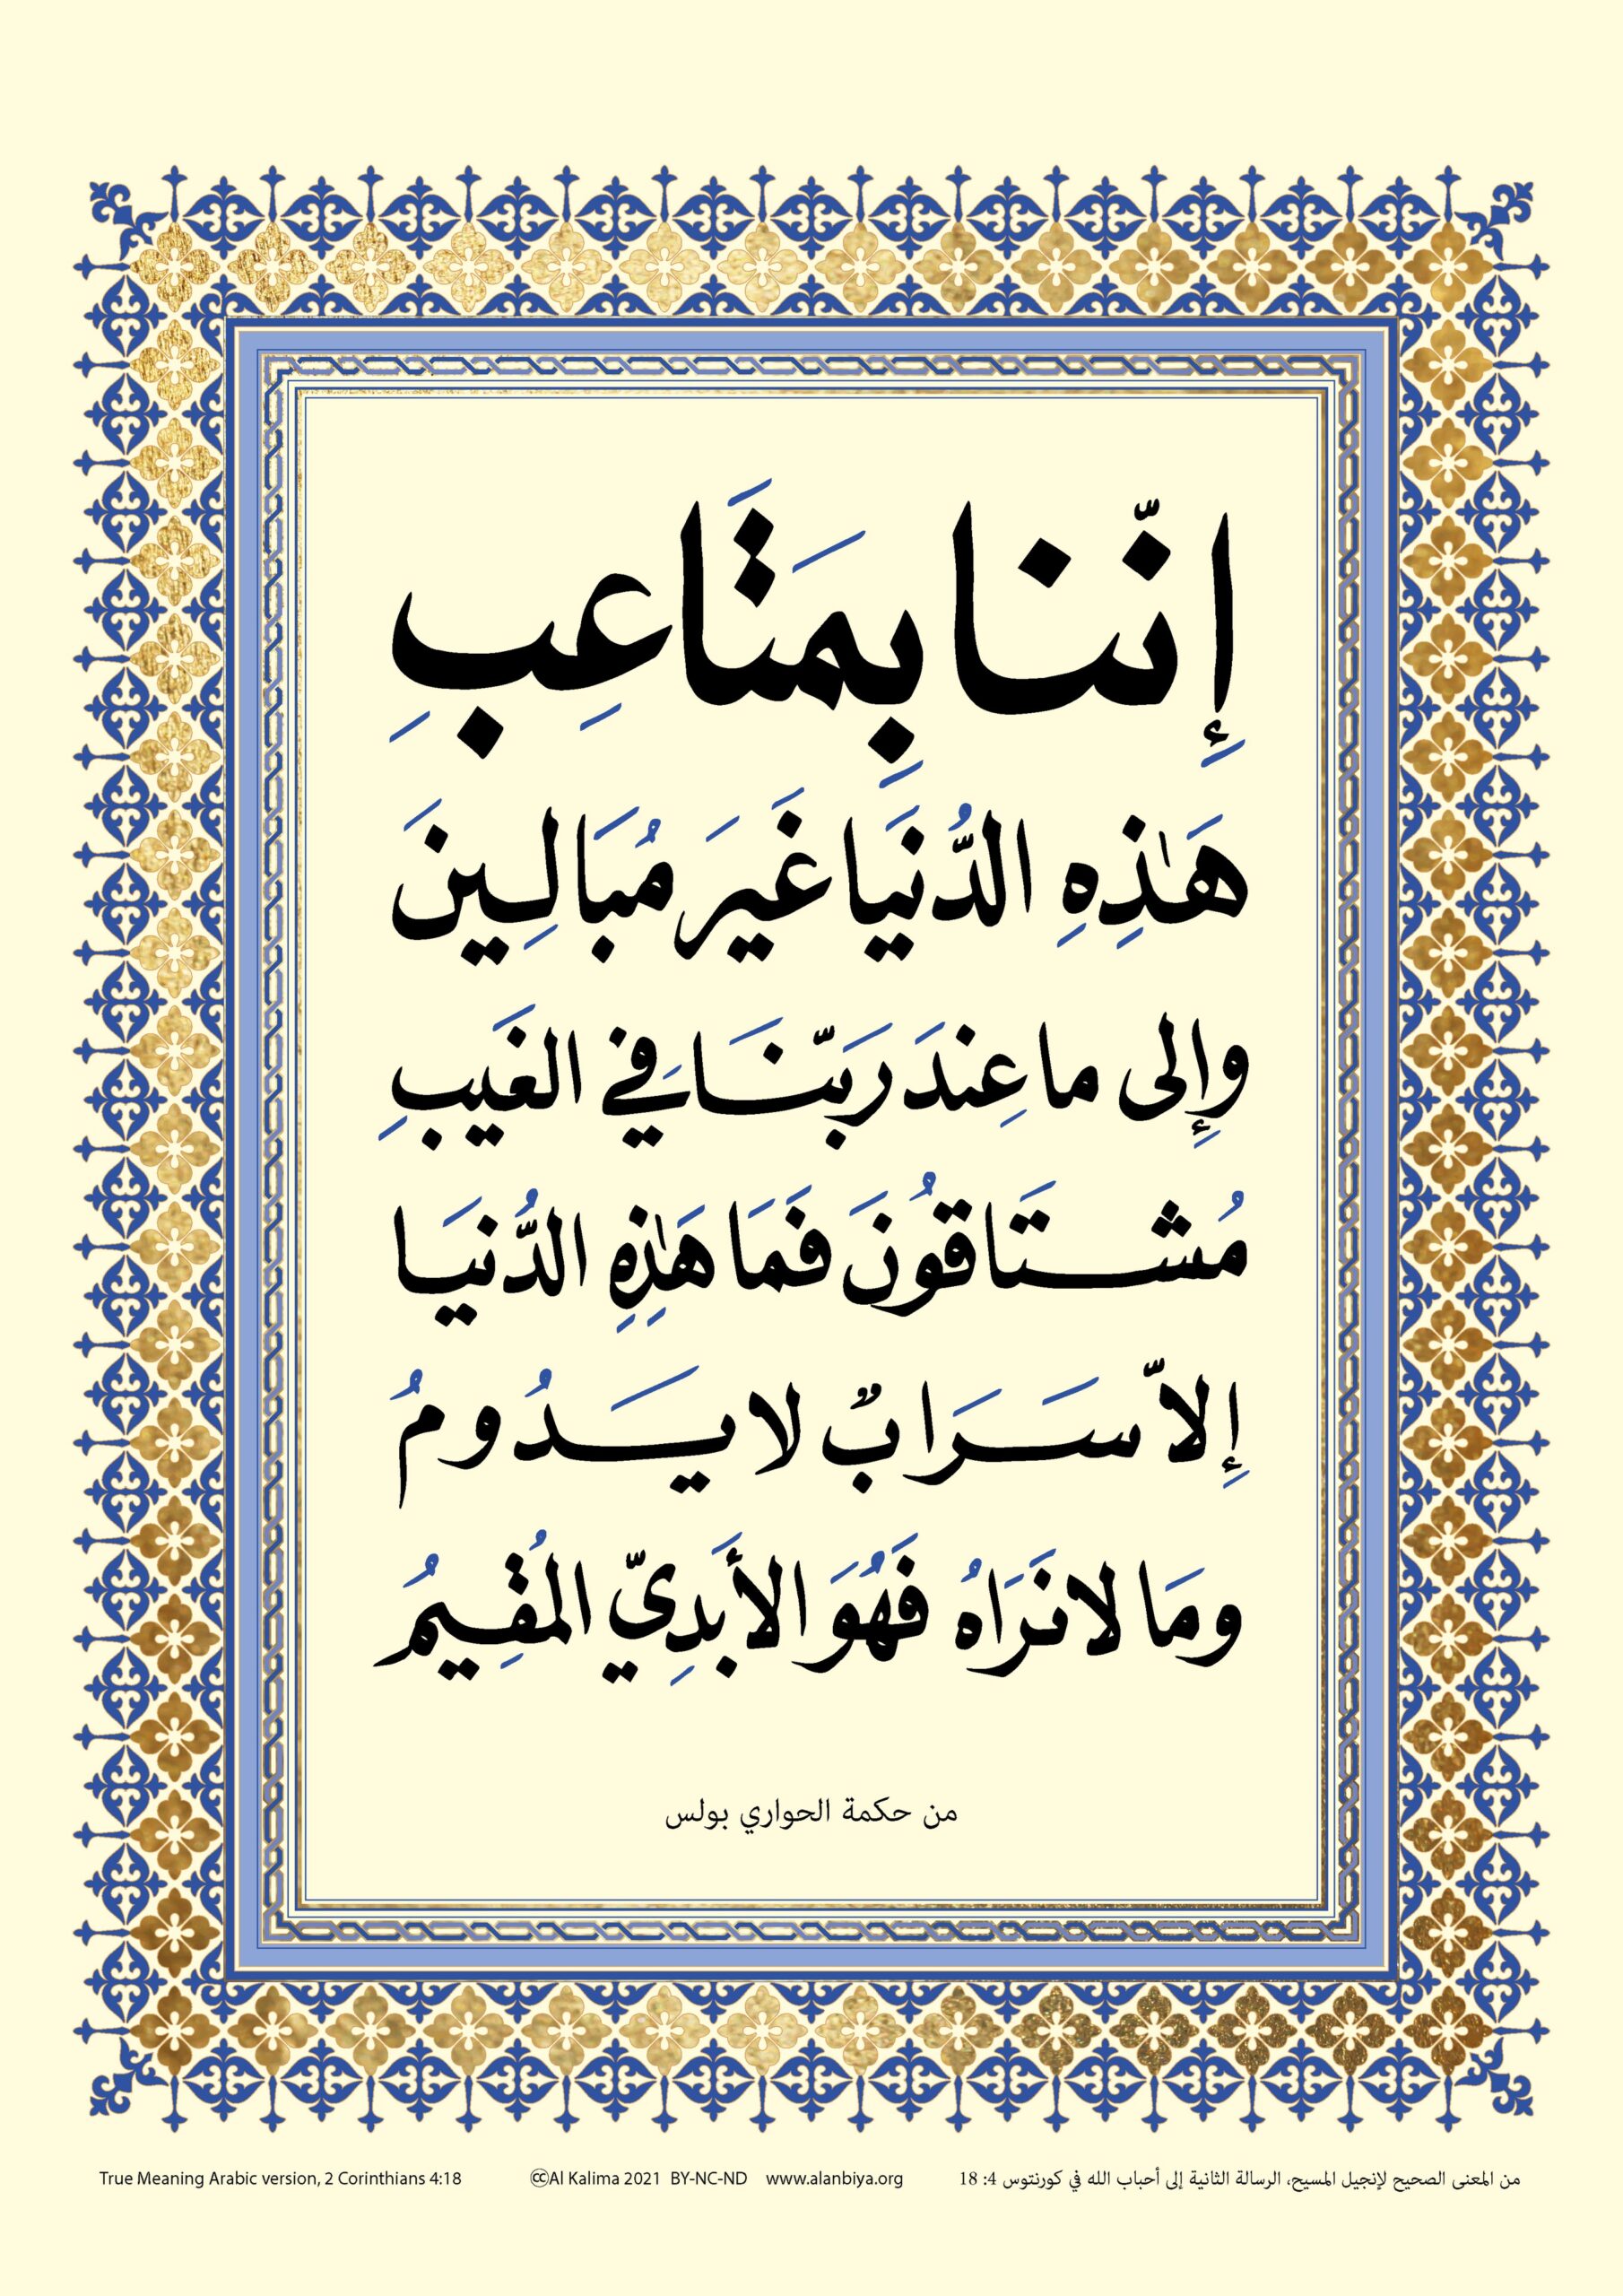 إنّنا بِمَتَاعِبِ
هَٰذِهِ الدُّنيَا غَيرَ مُبَالِينَ
وإِلى ما عِندَ رَبّنَا فِي الغَيبِ
مُشتَاقُونَ فَمَا هَٰذِهِ الدُّنيَا
إِلاّ سَرَابٌ لا يَدُومُ
ومَا لا نَرَاهُ فَهُوَ الأَبدِيّ المُقِيمُ
من حكمة الحواري بولس
True Meaning Arabic version, 2 Corinthians 4:18 🄯Al Kalima 2021 BY-NC-ND www.alanbiya.org من المعنى الصحيح لإنجيل المسيح، الرسالة الثانية إلى أحباب الله في كورنتوس 4: 18